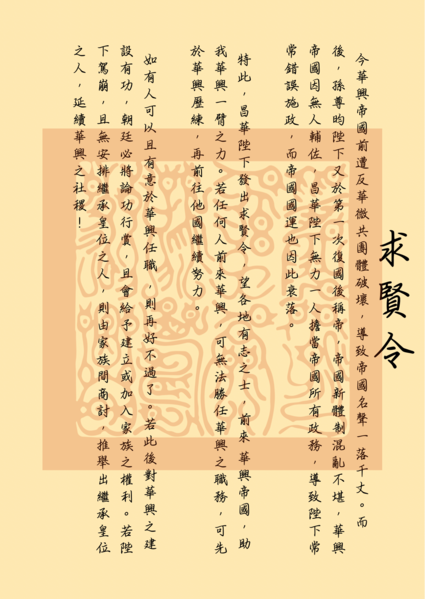 求賢令
今華興帝國前遭反華微共團體破壞，導致帝國名聲一落千丈。而
後，孫尊昀陛下又於第一次復國後稱帝，帝國新體制混亂不堪，華興
帝國因無人輔佐，昌華陛下無力一人擔當帝國所有政務，導致陛下常
常錯誤施政，而帝國國運也因此衰落。
特此，昌華陛下發出求賢令，望各地有志之士，前來華興帝國，助
我華興一臂之力。若任何人前來華興，可無法勝任華興之職務，可先
於華興歷練，再前往他國繼續努力。
如有人可以且有意於華興任職，則再好不過了。若此後對華興之建
設有功，朝廷必將論功行賞，且會給予建立或加入家族之權利。若陛
下駕崩，且無安排繼承皇位之人，則由家族間商討，推舉出繼承皇位
之人，延續華興之社稷！